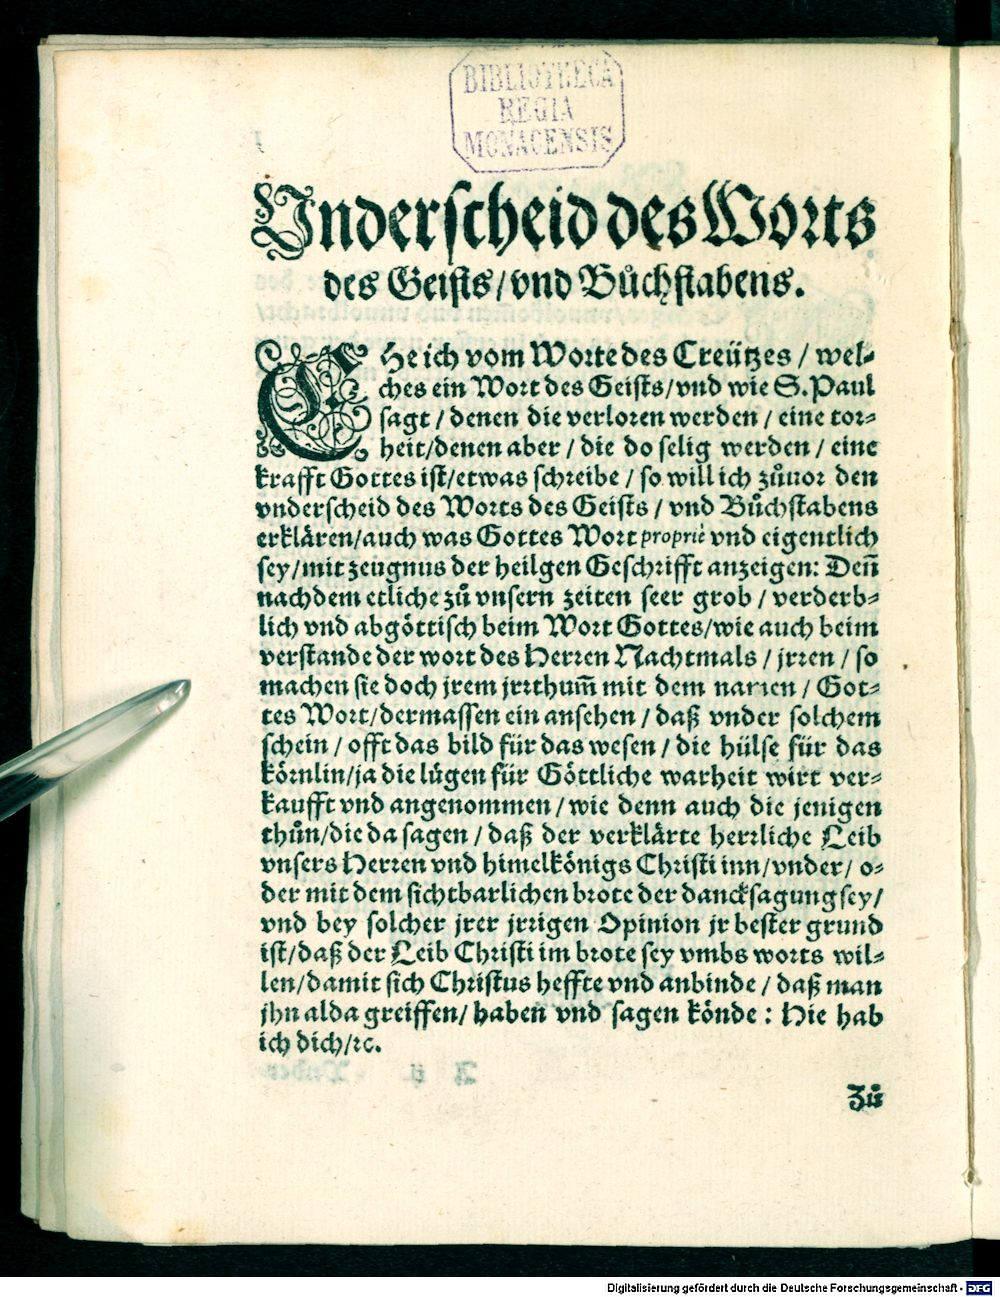 BIBLIOTHECA
REGIA
MONACENSIS
Vnderscheid des Worts
des Geists/vnd Bůchstabens.
EHe ich vom Worte des Creützes / wel⸗
ches ein Wort des Geists/vnd wie S. Paul
sagt / denen die verloren werden / eine tor⸗
heit/denen aber / die do selig werden / eine
krafft Gottes ist/etwas schreibe / so will ich zůuor den
vnderscheid des Worts des Geists / vnd Bůchstabens
erklären/auch was Gottes Wort propriè vnd eigentlich
sey/mit zeugnus der heilgen Geschrifft anzeigen: Deñ
nachdem etliche zů vnsern zeiten seer grob / verderb⸗
lich vnd abgöttisch beim Wort Gottes/wie auch beim
verstande der wort des Herren Nachtmals / jrren / so
machen sie doch jrem jrrthum̃ mit dem namen / Got⸗
tes Wort/dermassen ein ansehen / daß vnder solchem
schein / offt das bild für das wesen / die hülse für das
körnlin/ja die lügen für Göttliche warheit wirt ver⸗
kaufft vnd angenommen / wie denn auch die jenigen
thůn/die da sagen / daß der verklärte herrliche Leib
vnsers Herren vnd himelkönigs Christi inn/vnder/ o⸗
der mit dem sichtbarlichen brote der dancksagung sey/
vnd bey solcher jrer jrrigen Opinion jr bester grund
ist/daß der Leib Christi im brote sey vmbs worts wil⸗
len/damit sich Christus heffte vnd anbinde / daß man
jhn alda greiffen/ haben vnd sagen könde : Hie hab
ich dich/ꝛc.
Zů
Digitalisierung gefördert durch die Deutsche Forschungsgemeinschaft - DFG